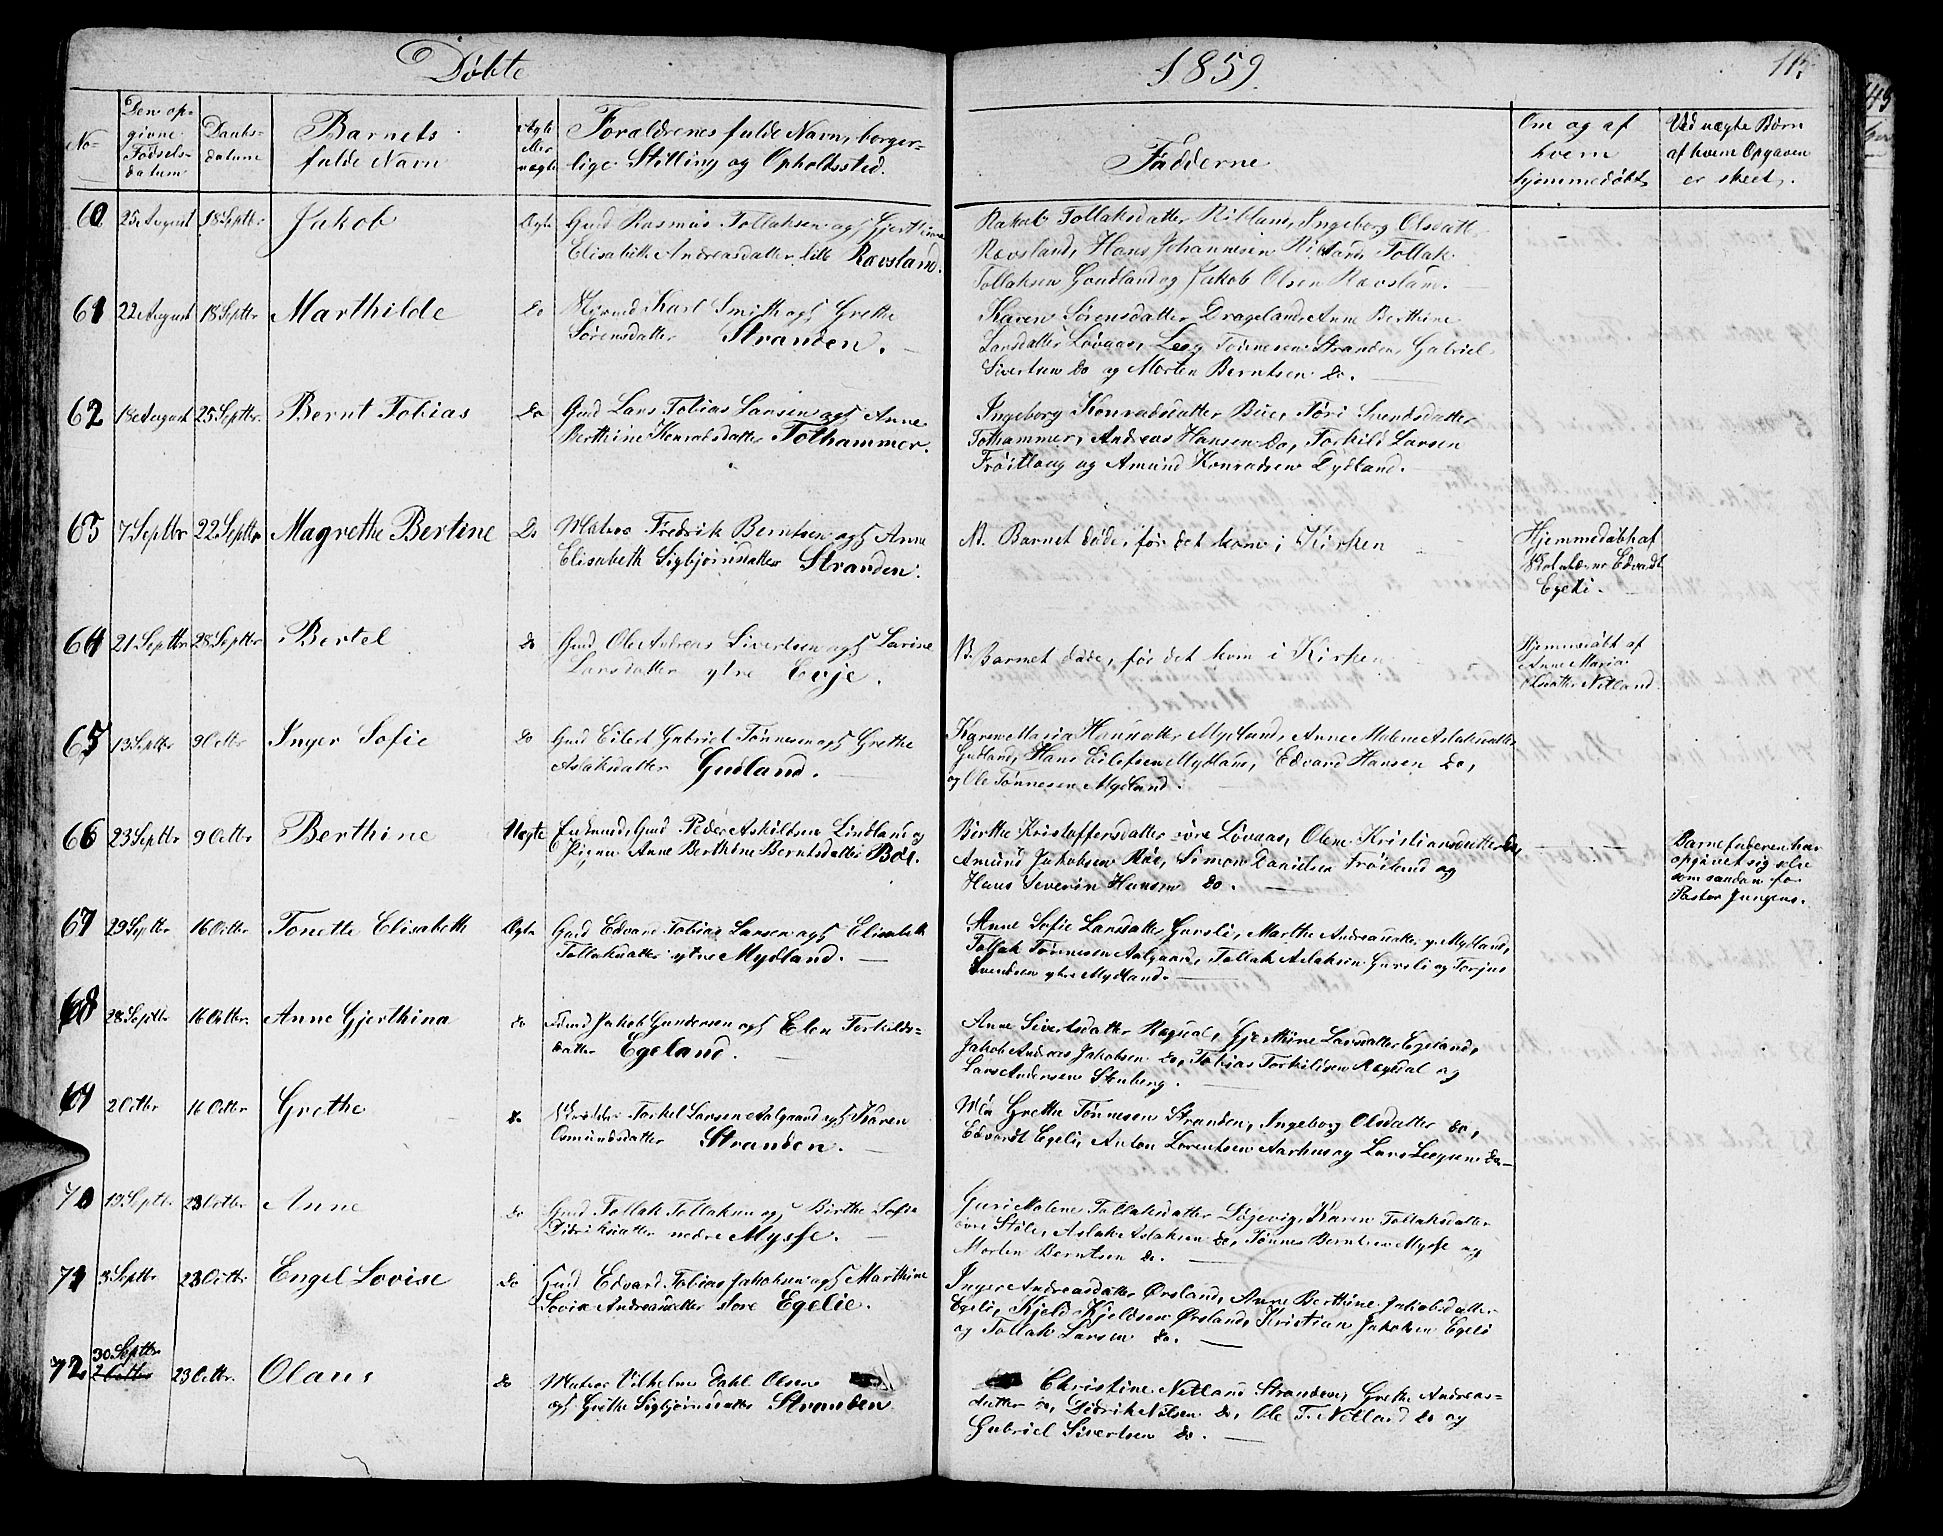 Døbte
1859.
No
Den op-
givne
Fødsels-
datum
Daabs-
datum
Barnets
fulde Navn
Ægte
eller
uægte
Forældrenes fulde Navn, borger-
lige Stilling og Opholdssted.
Fadderne
Om og af
hvem
hjemmedøbt
Ved uægte Børn
af hvem Opgaven
er skeet.
60 25 August 18 Septbr Jakob Ægte Gmd Rasmus Tollaksen og H Gjerthine
Elisabeth Andreasdatter lille Rævsland.
Rakel Tollaksdatter Ribland, Ingeborg Olsdatt.
Rævsland, Hans Johannesen Ribland, Tollak
Tollaksen Goudland og Jakob Olsen Rævsland.
61 22 August 18 Septbr Marthilde Do Karl Smith og H Grethe
Sørensdatter Stranden.
Karen Sørensdatter Drageland, Anne Berthine
Larsdatter Løvaas, Leeg Tønnesen Stranden, Gabriel
Sivertsen Do og Morten Berntsen Do.
62 18 August 25 Septbr. Bernt Tobias Do Gmd Lars Tobias Larsen og H Anne
Berthine Konradsdatter Tothammer.
Ingeborg Konradsdatter Bue, Tøri Svendsdatter
Tothammer, Andreas Hansen Do, Torkild Larsen
Frøitlaug og Amund Konradsen Dydland.
63 7 Septbr 22 Septbr Magrethe Bertine Do Matros Fredrik Berntsen og H Anne
Elisabeth Sigbjørnsdatter Stranden.
N. Barnet døde, før det kom i Kirken
Hjemmedøbt af
Skolelærer Edvardt
Egeli.
64 21 Septbr 28 Septbr Bertel Do Gmd Ole Andreas Sivertsen og H Larine
Larsdatter ytre Evje.
N. Barnet døde, før det kom i Kirken
Hjemmedøbt af
Anne Maria
Olsdatter Netland.
65 13 Septbr 9 Octbr Inger Sofie Do Gmd Eilert Gabriel Tønnesen og H Grethe
Aslaksdatter Gudland.
Karen Maria Hansdatter Mydland, Anne Malene Aslaksdatter
Gudland, Hans Eilefsen Mydland, Edvard Hansen Do,
og Ole Tønnesen Mydland.
66 23 Septbr 9 Octbr Berthine Uægte Enkmd, Gmd Peder Askildsen Lindland og
Pigen Anne Berthine Berntsdatter Bøe.
Berthe Kristoffersdatter øvre Løvaas, Olene Kristiansdatter Do,
Amund Jakobsen Røe, Simon Danielsen Frøiland og
Hans Severin Hansen Do.
Barnefaderen har
opgivet sig selv
som saadan for
Pastor Jungens.
67 29 Septbr 16 Octbr Tonette Elisabeth Ægte Gmd Edvard Tobias Larsen og H Elisabeth
Tollaksdatter ytre Mydland.
Anne Sofie Larsdatter Gursli, Marthe Andreasdatter y. Mydland,
Tollak Tønnesen Aalgaard, Tollak Aslaksen Gursli og Torjus
Svendsen ytre Mydland.
68 28 Septbr 16 Octbr. Anne Gjerthina do Gmd Jakob Gundersen og H Elen Torkilds-
datter Egeland.
Anne Sivertsdatter Regdal, Gjerthine Larsdatter Egeland,
Jakob Andreas Jakobsen do, Tobias Torkildsen Regdal og
Lars Andersen Stenberg.
69 2 Octbr 16 Octbr Grethe Do Skræder Torkel Larsen Aalgaard og H Karen
Osmundsdatter Stranden.
Mdm Grethe Tønnesen Stranden, Ingeborg Olsdatter do,
Edvardt Egeli, Anton Lorentsen Aarhus og Lars Leegsen do
70 19 Septbr. 23 Octbr Anne Do Gmd Tollak Tollaksen og H Birthe Sofia
Didriksdatter nedre Mysse.
Guri Malene Tollaksdatter Løgevig, Karen Tollaksdatter
øvre Støle, Aslak Aslaksen do, Tønnes Berntsen Mysse og
Morten Berntsen do.
71 3 Septbr 23 Octbr Engel Lovise Do Gmd Edvard Tobias Jakobsen og H Marthine
Lovise Andreasdatter store Egelie.
Inger Andreasdatter Ørsland, Anne Berthine Jakobsdatter
Egeli, Kjeld Kjeldsen Ørsland, Kristian Jakobsen Egeli
og Tollak Larsen do.
72 30 Septbr 2 Octbr 23 Octbr. Olaus do Matros Vilhelm Dahl Olsen
og H Grethe Sigbjørnsdatter Stranden
Christine Netland Stranden, Grethe Andreas-
datter do, Didrik Nilsen do, Ole T. Netland do og
Gabriel Sivertsen do.